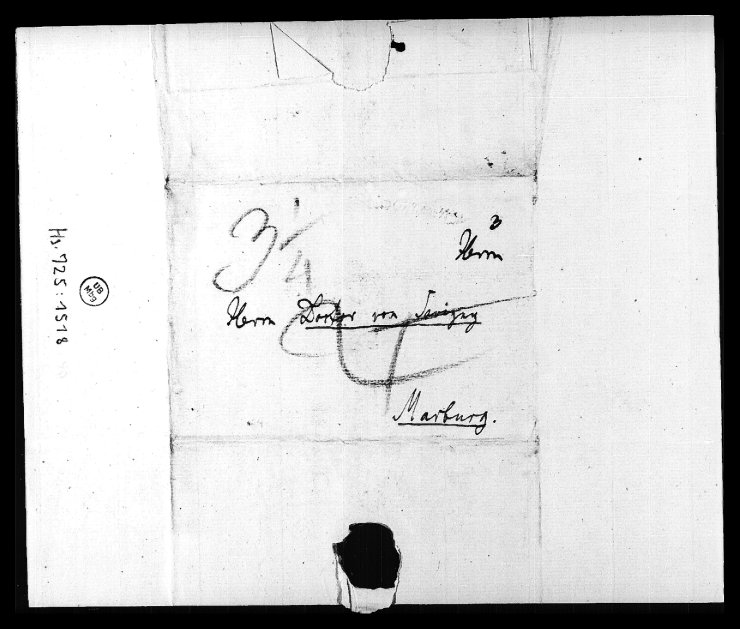 3 1/4
3
Herrn
Herrn Doctor von Savigny
Marburg.
Hs. 725:1518
UB
Mbg